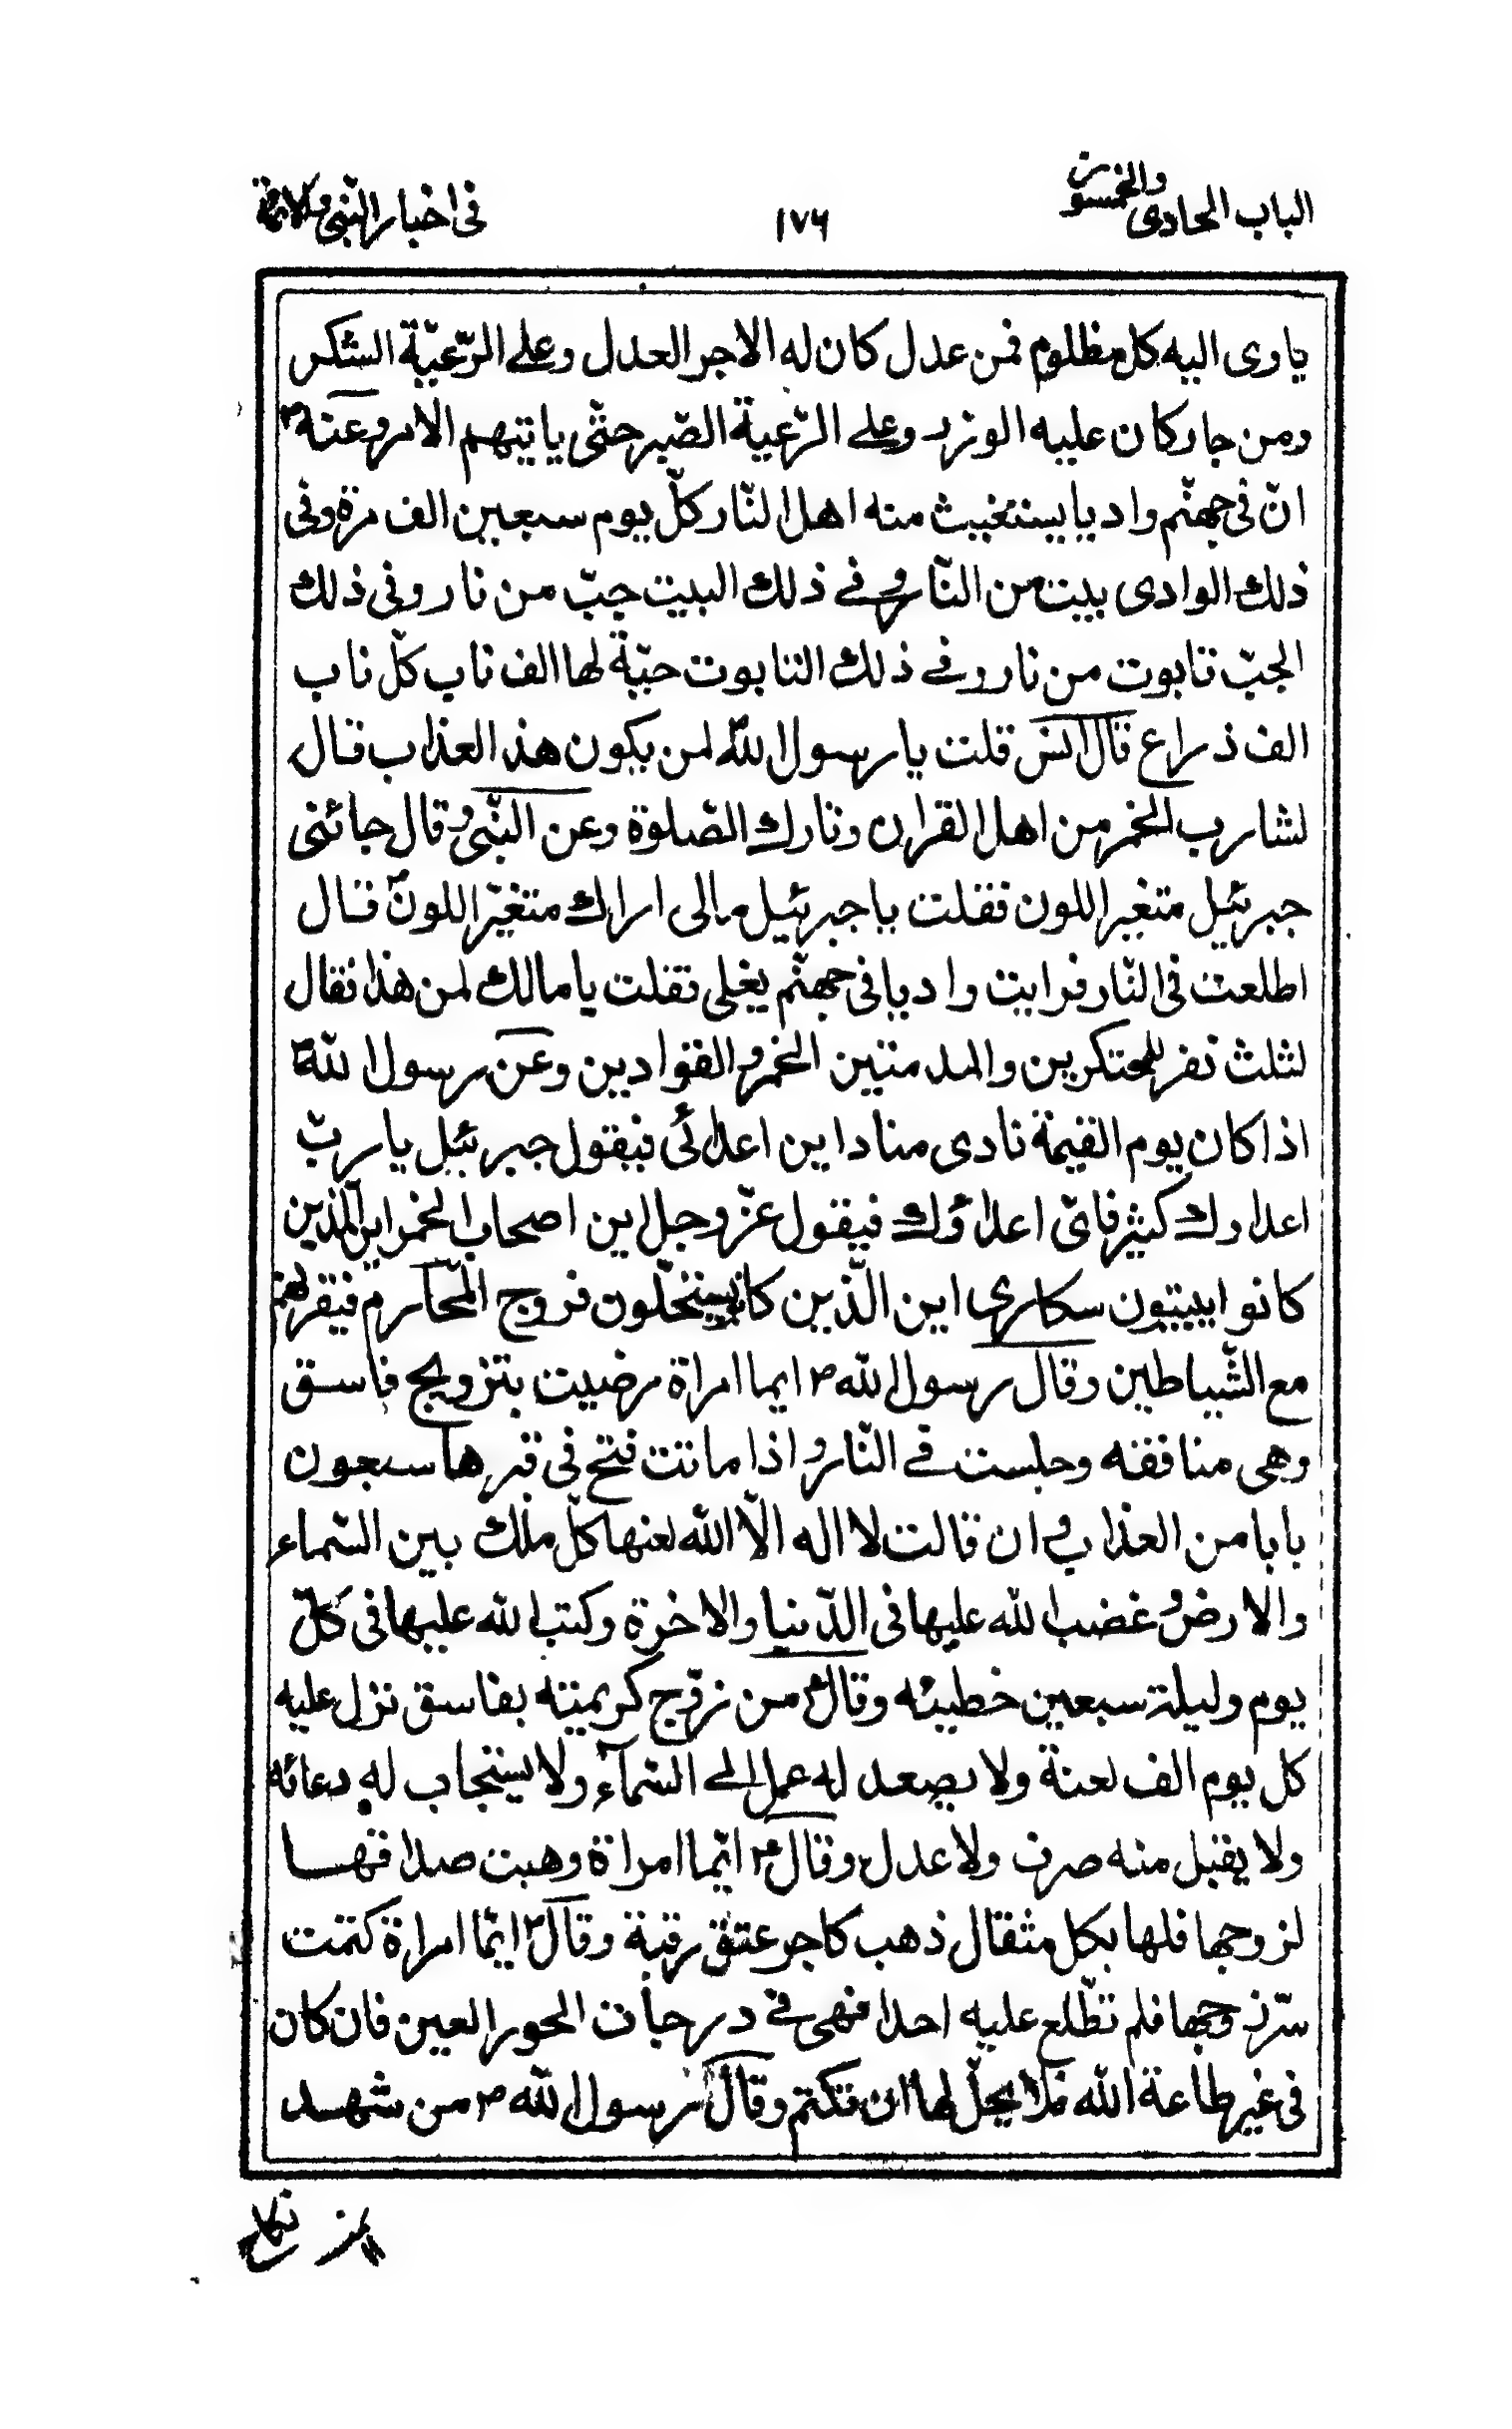 الباب الحادى والخمسون
١٧٦
فى اخبار النّبى والائمة
ياوى اليه كل مظلوم فمن عدل كان له الاجر العدل وعلى الرّعيّة الشكر
ومن جار كان عليه الوزر وعلى الرّعية الصّبر حتّى ياتيهم الامر وعنه ص
انّ فى جهنّم واديا يستغيث منه اهل النّار كلّ يوم سبعين الف مرة وفى
ذلك الوادى بيت من النّار وفى ذلك البيت جبّ من نار وفى ذلك
الجبّ تابوت من نار وفى ذلك التابوت حيّة لها الف ناب كلّ ناب
الف ذراع قال انس قلت يا رسول اللّه لمن يكون هذ العذاب قال
لشارب الخمر من اهل القران وتارك الصّلوة وعن النّبى ص قال جائنى
جبرئيل متغير اللون فقلت يا جبرئيل مالى اراك متغيّر اللون قال
اطلعت فى النّار فرايت واديا فى جهنّم يغلى فقلت يا مالك لمن هذا فقال
لثلث نفر للمحتكرين والمدمنين الخمر والقوادين وعن رسول اللّه ص
اذا كان يوم القيمة نادى مناد اين اعدائى فيقول جبرئيل يا ربّ
اعداوك كثير فاىّ اعداؤك فيقول عزّ وجل اين اصحاب الخمر اين الّذين
كانوا يبيتون سكارى اين الّذين كانوا يستحلّون فروج المحآرم فيقرنهم
مع الشّياطين وقال رسول اللّه ص ايما امراة رضيت بتزويج فاسق
وهى منافقه وجلست فى النّار واذا ماتت فتح فى قبرها سبعون
بابا من العذاب وان قالت لا اله الّا اللّه لعنها كلّ ملك بين السّماء
والارض وغضب اللّه عليها فى الدّنيا والاخرة وكتب اللّه عليها فى كلّ
يوم وليلة سبعين خطيئه وقال ص من زوّج كريمته بفاسق نزل عليه
كل يوم الف لعنة ولا يصعد له عمل الى السّمآء ولا يستجاب له دعائه
ولا يقبل منه صرف ولا عدل وقال ص ايّما امراة وهبت صداقها
لزوجها فلها بكل مثقال ذهب كاجر عتق رقبة وقال ص ايّما امراة كتمت
سرّ زوجها فلم تطّلع عليه احدا فهى فى درجات الحور العين فان كان
فى غير طاعة اللّه فلا يحلّ لها ان تكتم وقال رسول اللّه ص من شهد
نكاح